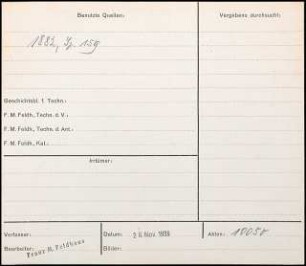 Benutzte Quellen:
Vergebens durchsucht:
1882, Sp. 159
Geschichtsbl. f. Techn.:
F. M. Feldh., Techn. d. V.:
F. M. Feldh., Techn. d. Ant.:
F. M. Feldh., Kal.:
Irrtümer:
Verfasser:
Datum:
Nov.
Akten:
Bearbeiter:
Franz M. Feldhaus
Bilder: